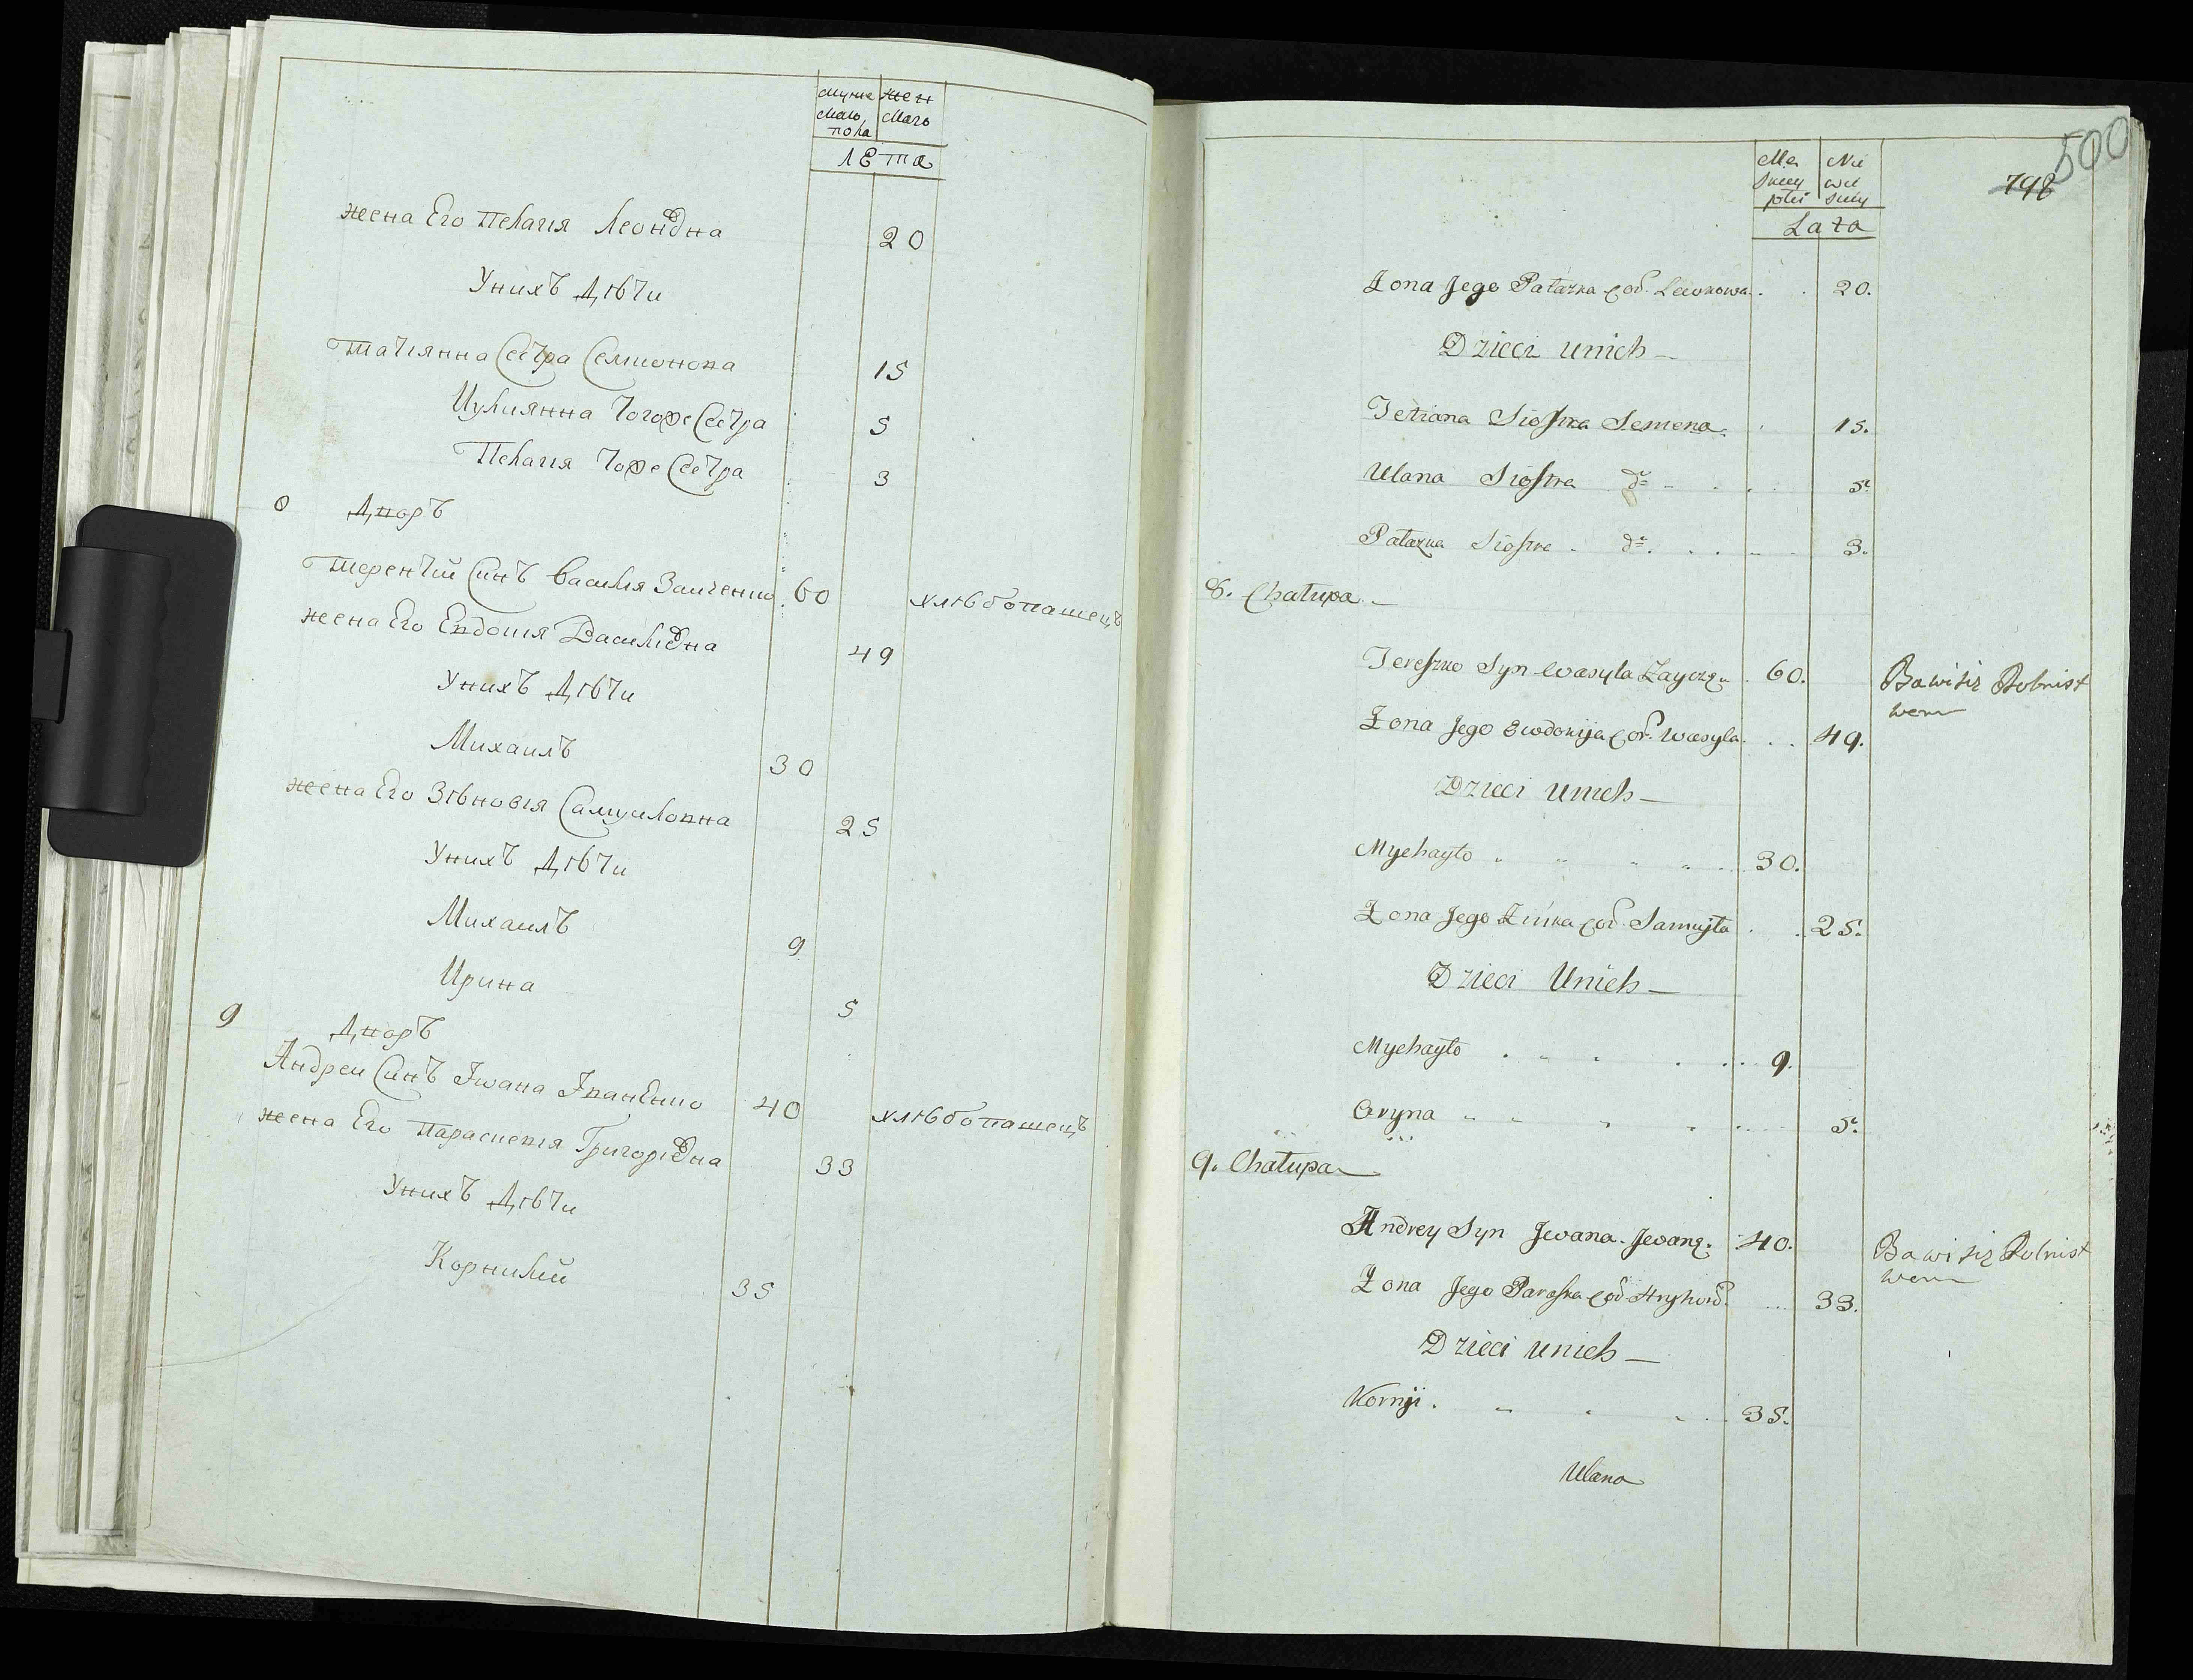 муже жен
ска[го] скаго
пола
лѣта
жена Его Пелагія Леонідна 20
У нихъ Дѣти
Татіянна Сестра Семионова 15
Иулиянна Тогоже Сестра 5
Пелагія Тоже Сестра 3
8 Дворъ
Терентий Синъ Василія Заиченко 60 хлѣбопашецъ
жена Его Евдокія Василідна 49
У нихъ Дѣти
Михаилъ 30
жена Его Зѣновія Самуиловна 25
У нихъ Дѣти
Михаилъ 9
Ирина 5
9 Дворъ
Андреи Синъ Івана Іваненко 40 хлѣбопашецъ
жена Его Параскевія Григорідна 33
У нихъ Дѣти
Корнилий 35
500
798
Mę Nie
skiey wie
płci skiey
Lata
Żona Jego Pałazka Cor. Lewkowa 20.
Dzieci unich
Tetiana Siostra Semena 15.
Ulana Siostra do 5.
Pałazka Siostra do 3.
8. Chałupa
Tereszko Syn Wasyla Zaycz. 60. Bawi się Rolnist
wem
Żona Jego Ewdokija Cor. Wasyla 49.
Dzieci Unich
Mychayło 30.
Żona Jego Zińka Cor. Samujła 25.
Dzieci Unich
Mychayło 9.
Oryna 5.
9. Chałupa
Andrey Syn Jwana Jwanę. 40. Bawi się Rolnist
wem
Żona Jego Paraska Cor. Hryhoro. 33.
Dzieci unich
Kornji 35.
Ulana